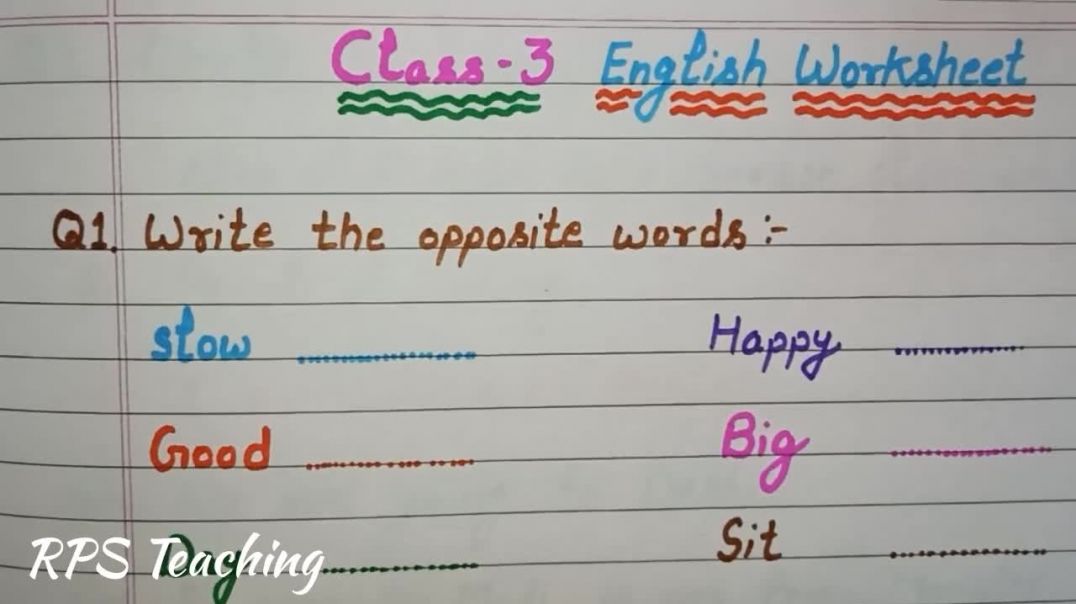 Class-3 English Worksheet
Q1. Write the opposite words:-
slow .................... Happy ..............
Good .................... Big ..................
Day .................... Sit ..................
RPS Teaching